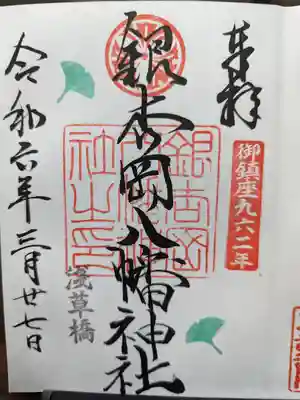 奉拝
御鎮座九六二年
銀杏岡八幡神社
銀杏岡
社之印
浅草橋
令和六年三月廿七日